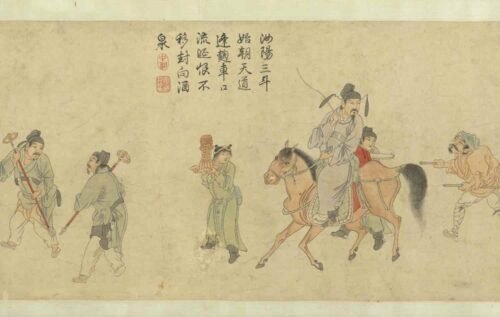 汝陽三斗
始朝天道
逢麴車口
流涎恨不
移封向酒
泉